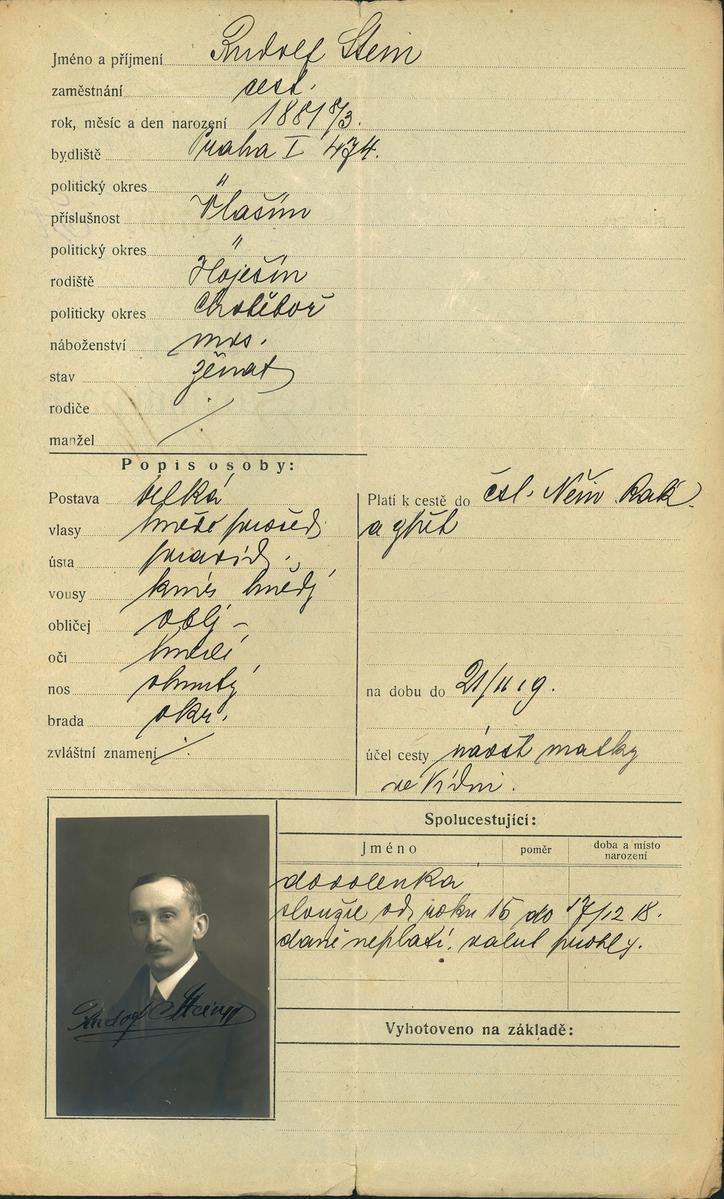 Jméno a příjmení Rudolf Stein
zaměstnání cest.
rok, měsíc a den narození 1881 8/3.
bydliště Praha I 474.
politický okres "
příslušnost Vlašim
politický okres "
rodiště Hoješín
politicky okres Chotěboř
náboženství mos.
stav ženat
rodiče
manžel
Popis osoby:
Postava velká
vlasy hnědé prošed.
ústa pravid.
vousy knír hnědý
obličej oblý
oči hnědé
nos ohnutý
brada okr.
zvláštní znamení
Platí k cestě do čsl. Něm. Rak.
a zpět
na dobu do 21/11 19.
účel cesty návšt matky
ve Vídni.
Spolucestující:
Jméno
poměr
doba a místo
narození
dovolenka
sloužil od roku 15 do 17/12 18.
daně neplatí.
Rudolf Stein
Vyhotoveno na základě: